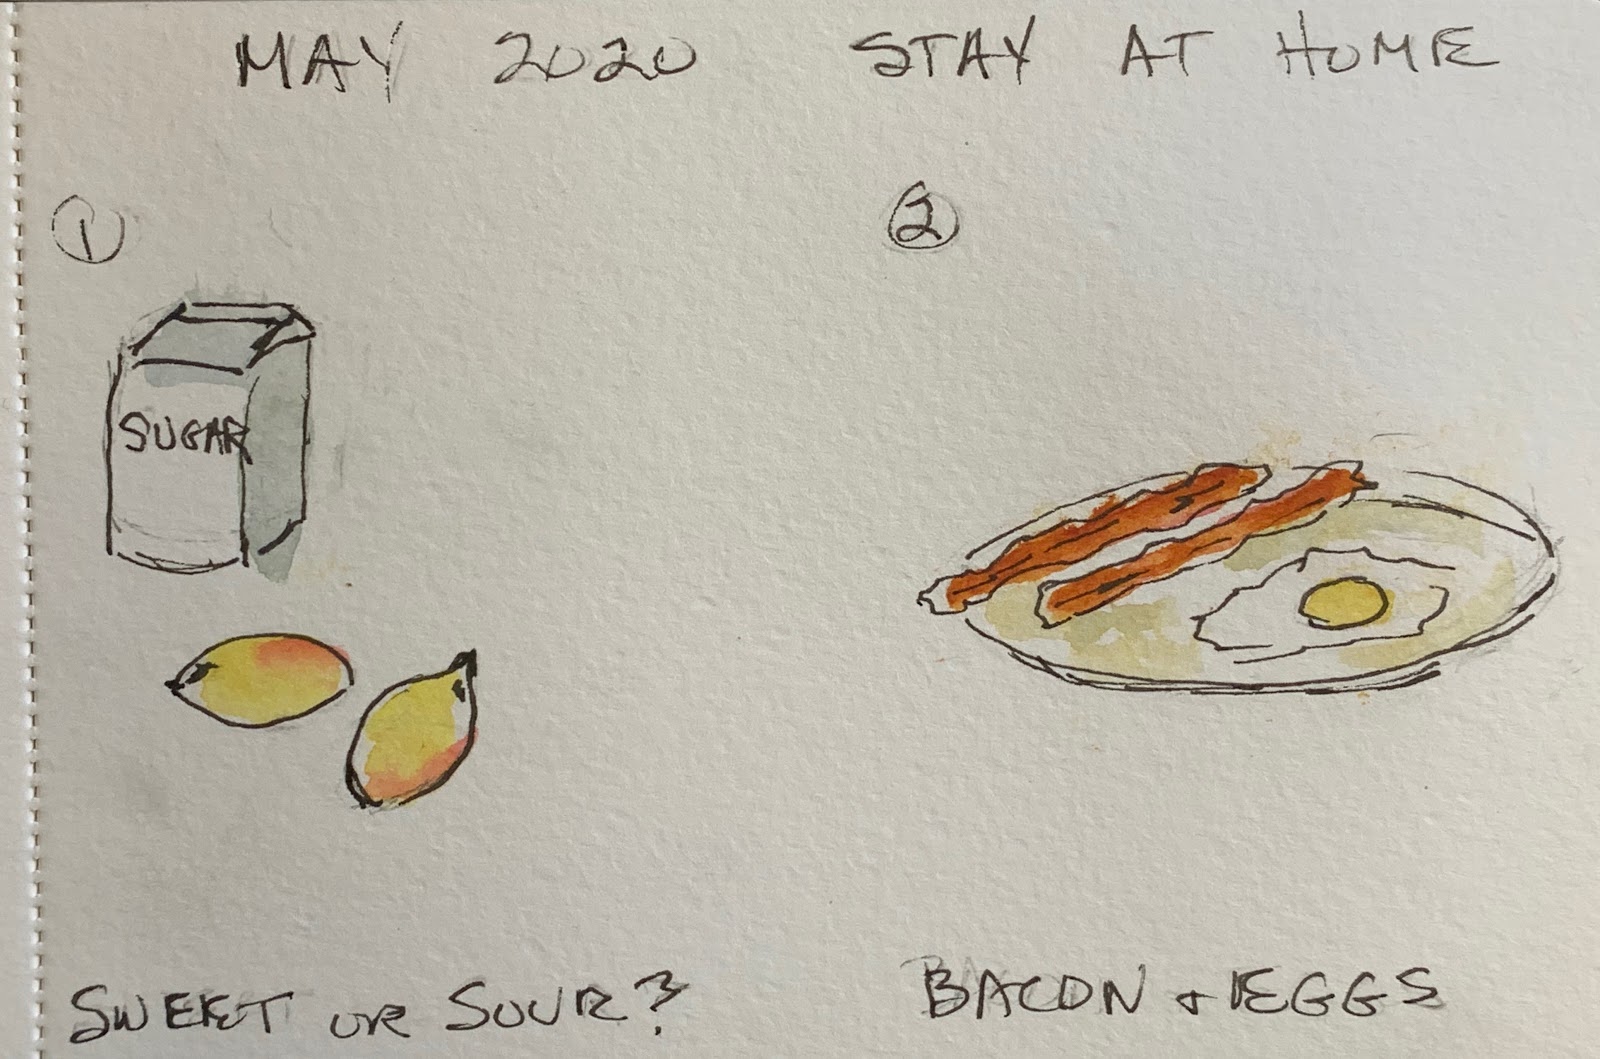 MAY 2020 STAY AT HOME
① ②
SUGAR
SWEET OR SOUR? BACON + EGGS